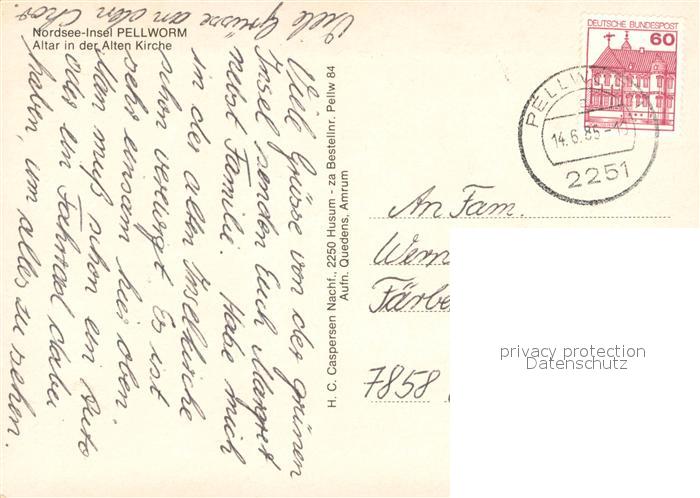 Nordsee-Insel PELLWORM
Altar in der Alten Kirche
Viele Grüsse von der grünen
Insel senden Euch Margret
nebst Familie. Habe mich
in der alten Inselkirche
schon verewigt Es ist
sehr einsam hier oben.
Man muß schon ein Auto
oder ein Fahrrad dabei
haben, um alles zu sehen.
Viele Grüsse an den Chor.
H. C. Caspersen Nachf., 2250 Husum - za Bestellnr. Pellw 84
Aufn. Quedens, Amrum
DEUTSCHE BUNDESPOST
60
PELLWORM
14.6.85-
2251
An Fam.
Wern
Färbe
7858
privacy protection
Datenschutz